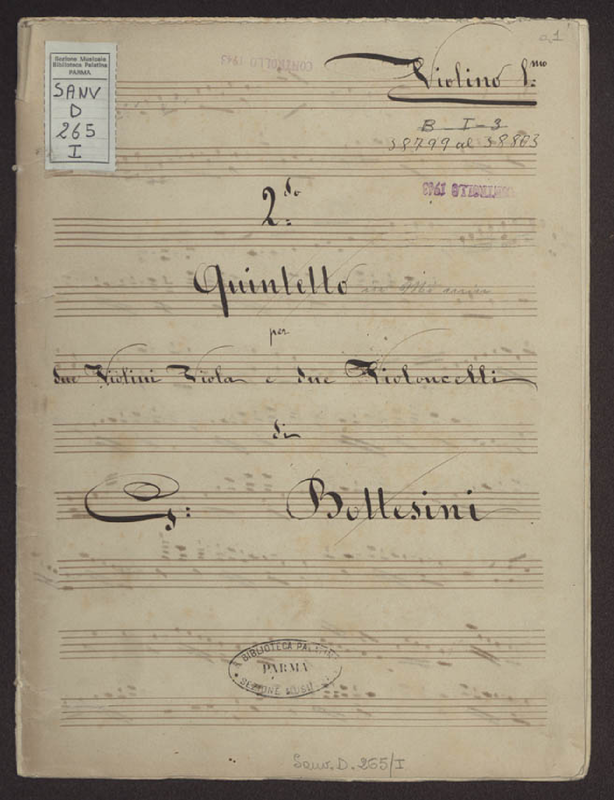 c.1
Sezione Musicale
Biblioteca Palatina
PARMA
SANV
D
265
I
CONTROLLO 1943
Violino 1.mo
B I-3
38799 al 38803
CONTROLLO 1943
2.do
Quintetto in
per
due Violini Viola e due Violoncelli
di
G: Bottesini
BIBLIOTECA PALATINA
PARMA
SEZIONE MUSIC
Sanv. D. 265/I